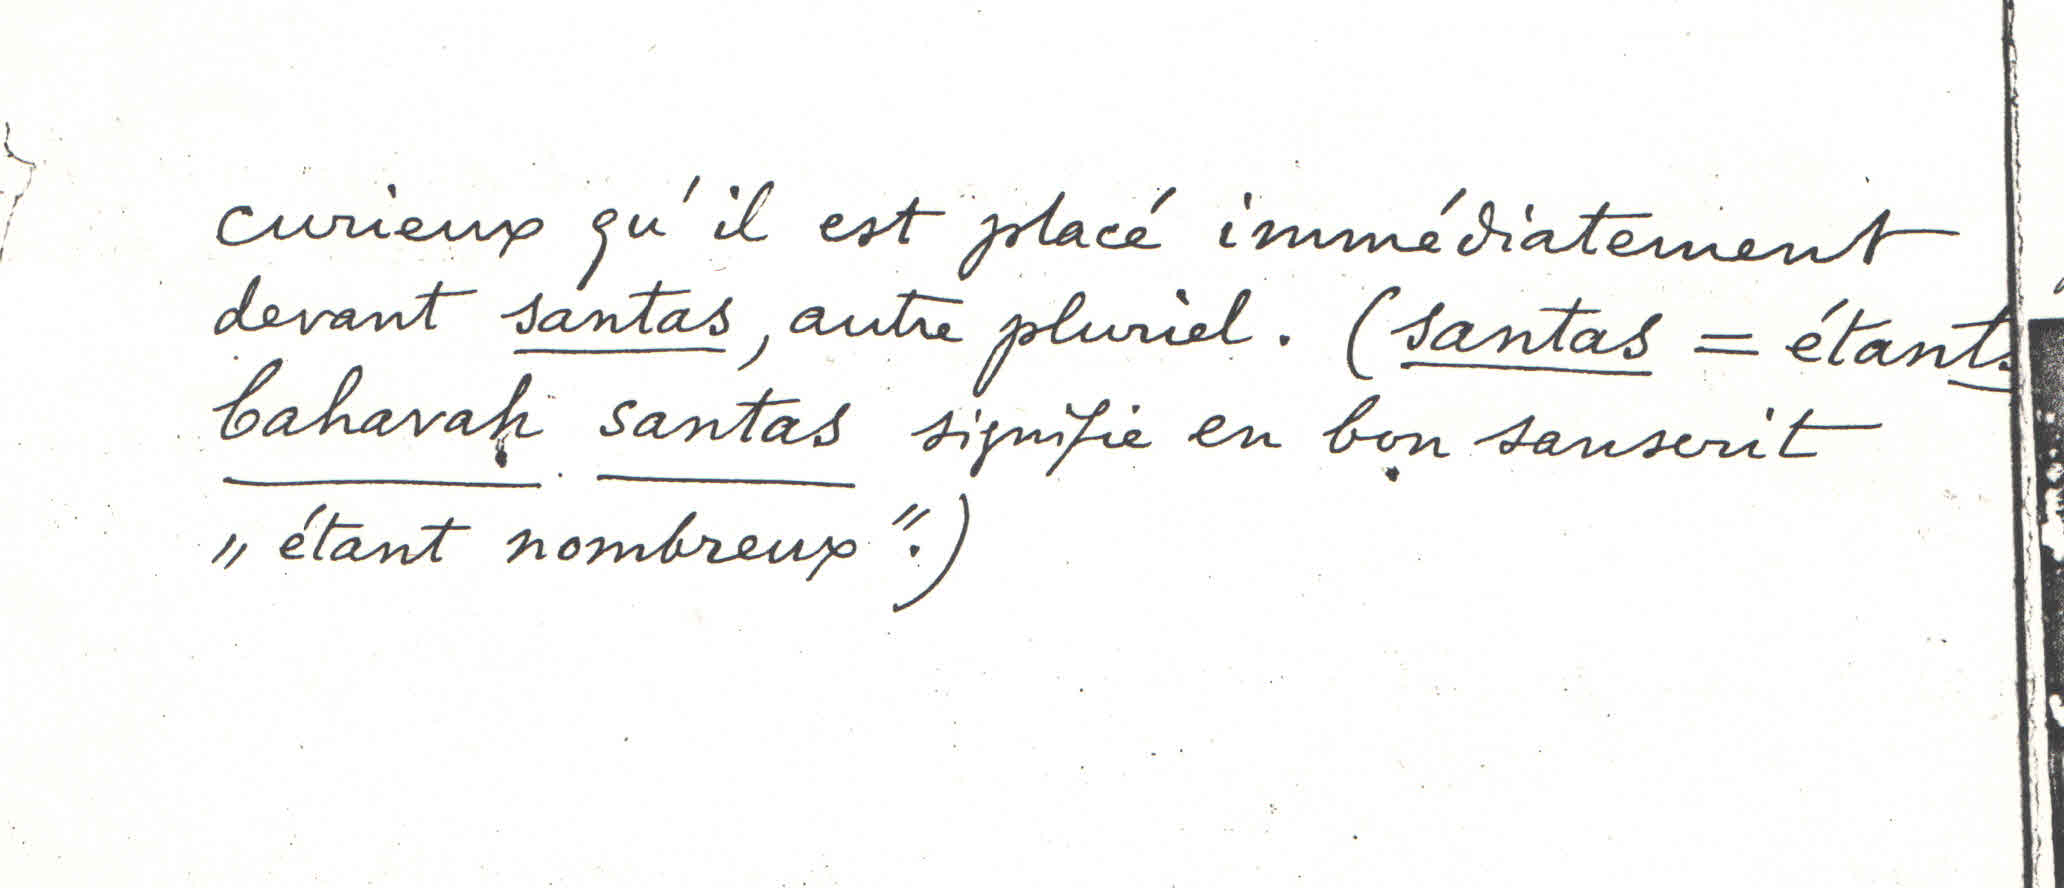 curieux qu'il est placé immédiatement
devant santas, autre pluriel. (santas = étants.
bahavaḥ santas signifie en bon sanscrit
„ étant nombreux ".)